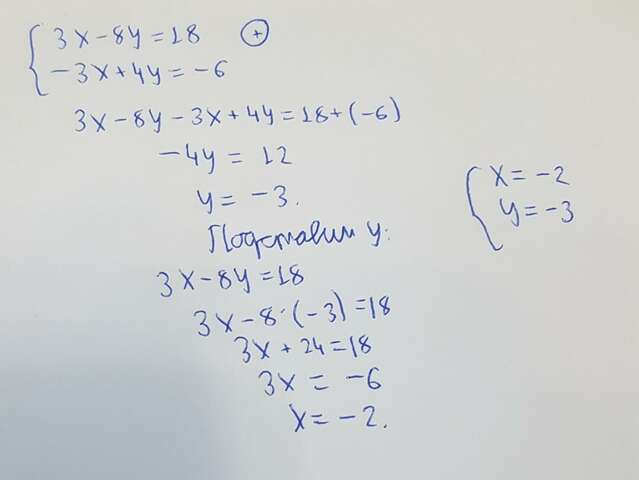 3x-8y=18 (+)
-3x+4y=-6
3x-8y-3x+4y=18+(-6)
-4y=12
y=-3.
Подставим y:
3x-8y=18
3x-8·(-3)=18
3x+24=18
3x=-6
x=-2.
x=-2
y=-3